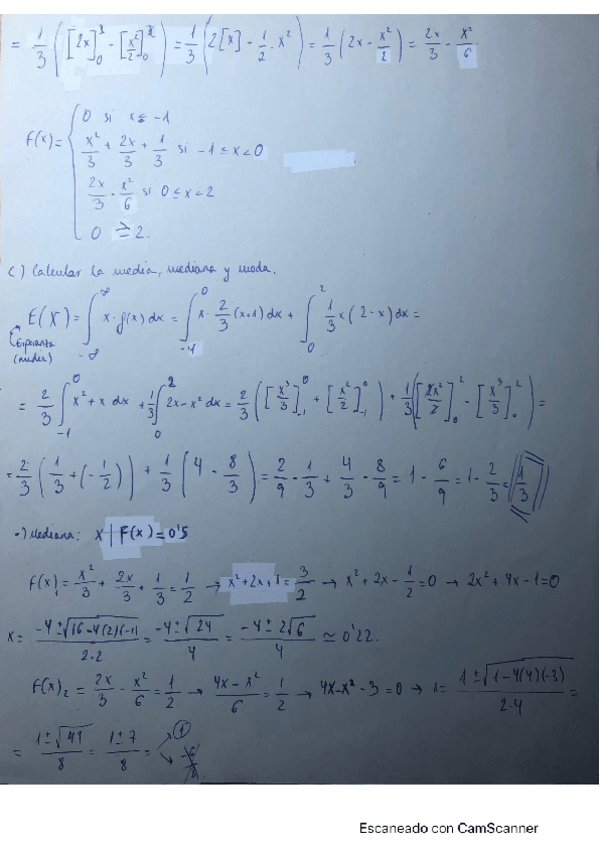 = 1/3 ([2x]₀ˣ - [x²/2]₀ˣ) = 1/3 (2[x] - 1/2 · x²) = 1/3 (2x - x²/2) = 2x/3 - x²/6.
F(x) = { 0 si x ≤ -1
x²/3 + 2x/3 + 1/3 si -1 ≤ x < 0
2x/3 - x²/6 si 0 ≤ x < 2
0 ≥ 2.
c) Calcular la media, mediana y moda.
E(X) = ∫_{-∞}^{∞} x · f(x) dx = ∫_{-1}^{0} x · 2/3 (x+1) dx + ∫_{0}^{2} 1/3 x (2-x) dx =
Esperanza
(media)
= 2/3 ∫_{-1}^{0} x² + x dx + 1/3 ∫_{0}^{2} 2x - x² dx = 2/3 ([x³/3]_{-1}^{0} + [x²/2]_{-1}^{0}) + 1/3 ([2x²/2]_{0}^{2} - [x³/3]_{0}^{2}) =
= 2/3 (1/3 + (-1/2)) + 1/3 (4 - 8/3) = 2/9 - 1/3 + 4/3 - 8/9 = 1 - 6/9 = 1 - 2/3 = 1/3
·) Mediana: x | F(x) = 0'5
F(x)₁ = x²/3 + 2x/3 + 1/3 = 1/2 → x² + 2x + 1 = 3/2 → x² + 2x - 1/2 = 0 → 2x² + 4x - 1 = 0
x = (-4 ± √(16 - 4(2)(-1)))/(2·2) = (-4 ± √24)/4 = (-4 ± 2√6)/4 ≃ 0'22.
F(x)₂ = 2x/3 - x²/6 = 1/2 → (4x - x²)/6 = 1/2 → 4x - x² - 3 = 0 → x = (1 ± √(1 - 4(4)(-3)))/(2·4) =
= (1 ± √49)/8 = (1 ± 7)/8 = 1
-6/8
Escaneado con CamScanner